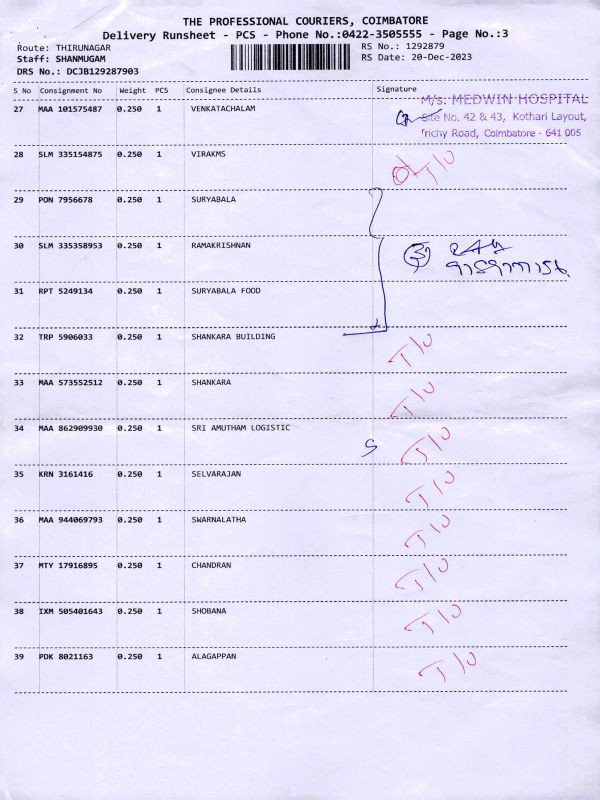 THE PROFESSIONAL COURIERS, COIMBATORE
Delivery Runsheet - PCS - Phone No.:0422-3505555 - Page No.:3
Route: THIRUNAGAR RS No.: 1292879
Staff: SHANMUGAM RS Date: 20-Dec-2023
DRS No.: DCJB129287903
S No Consignment No Weight PCS Consignee Details Signature
27 MAA 101575487 0.250 1 VENKATACHALAM
M/S. MEDWIN HOSPITAL
Site No. 42 & 43, Kothari Layout,
Trichy Road, Coimbatore - 641 005
28 SLM 335154875 0.250 1 VIRAKMS T/O
29 PON 7956678 0.250 1 SURYABALA
30 SLM 335358953 0.250 1 RAMAKRISHNAN 3
31 RPT 5249134 0.250 1 SURYABALA FOOD
32 TRP 5906033 0.250 1 SHANKARA BUILDING T/O
33 MAA 573552512 0.250 1 SHANKARA T/O
34 MAA 862909930 0.250 1 SRI AMUTHAM LOGISTIC S T/O
35 KRN 3161416 0.250 1 SELVARAJAN T/O
36 MAA 944069793 0.250 1 SWARNALATHA T/O
37 MTY 17916895 0.250 1 CHANDRAN T/O
38 IXM 505401643 0.250 1 SHOBANA T/O
39 PDK 8021163 0.250 1 ALAGAPPAN T/O